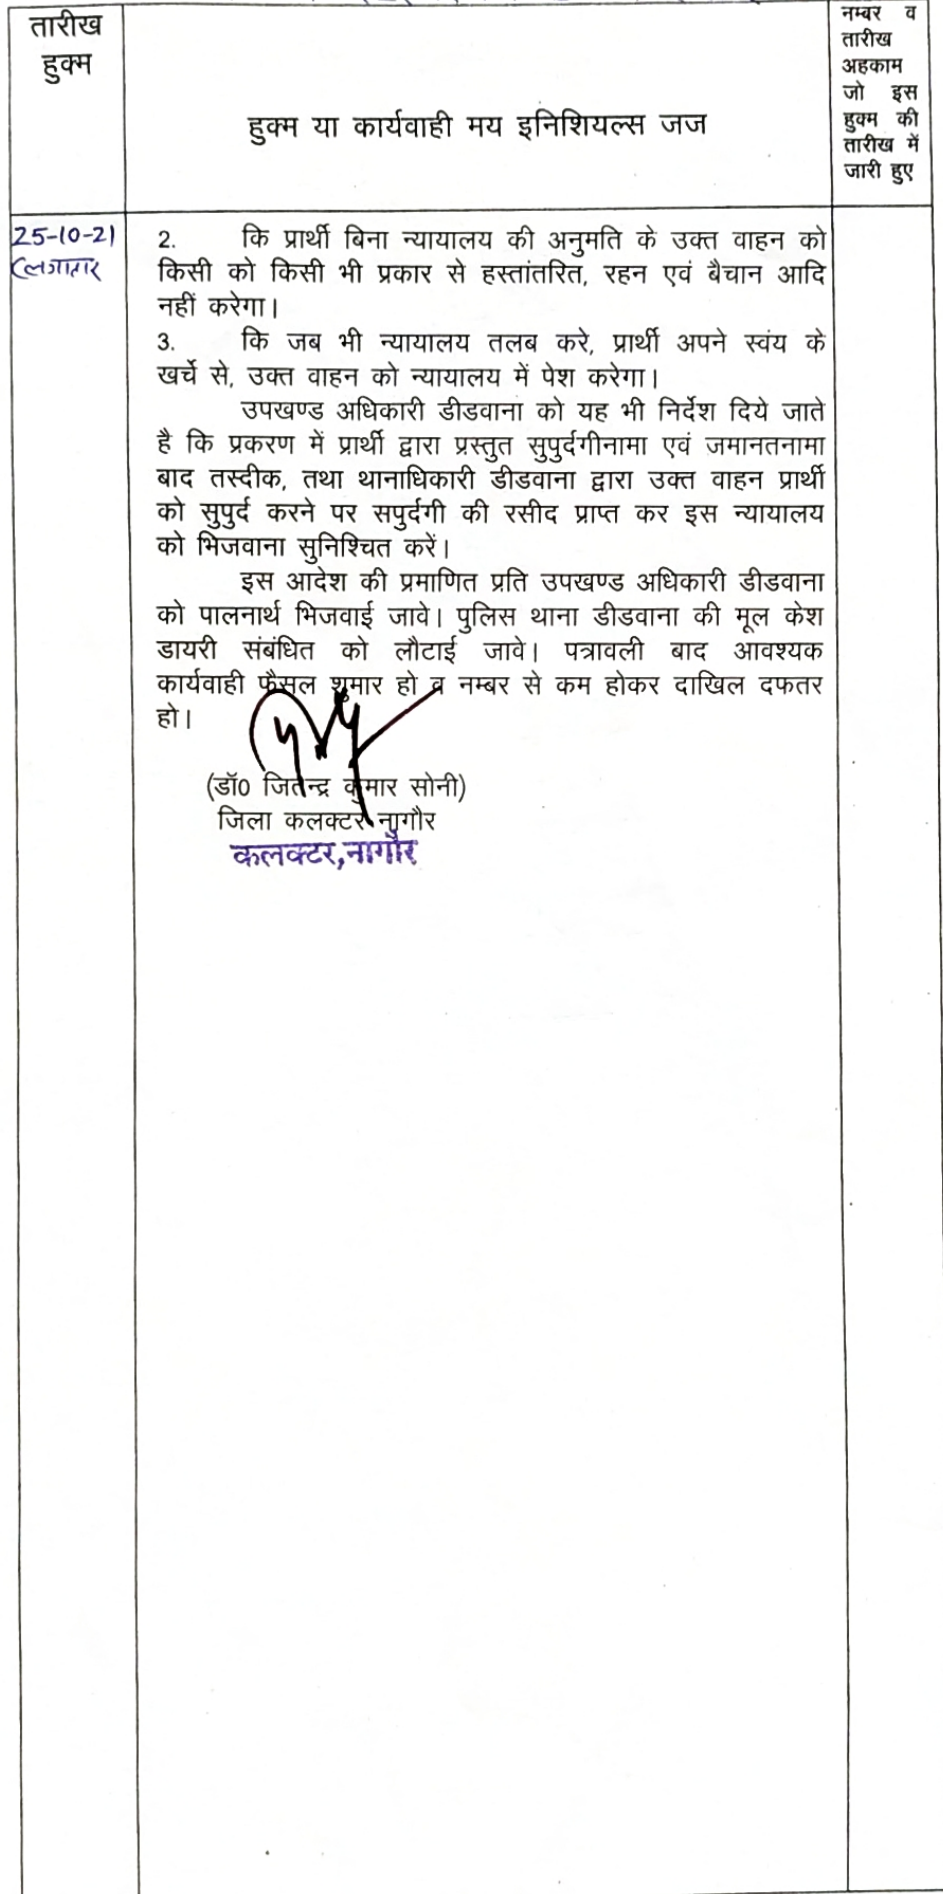 तारीख
हुक्म
हुक्म या कार्यवाही मय इनिशियल्स जज
नम्बर व
तारीख
अहकाम
जो इस
हुक्म की
तारीख में
जारी हुए
25-10-21
लगातार
2. कि प्रार्थी बिना न्यायालय की अनुमति के उक्त वाहन को
किसी को किसी भी प्रकार से हस्तांतरित, रहन एवं बैचान आदि
नहीं करेगा।
3. कि जब भी न्यायालय तलब करे, प्रार्थी अपने स्वंय के
खर्चे से, उक्त वाहन को न्यायालय में पेश करेगा।
उपखण्ड अधिकारी डीडवाना को यह भी निर्देश दिये जाते
है कि प्रकरण में प्रार्थी द्वारा प्रस्तुत सुपुर्दगीनामा एवं जमानतनामा
बाद तस्दीक, तथा थानाधिकारी डीडवाना द्वारा उक्त वाहन प्रार्थी
को सुपुर्द करने पर सपुर्दगी की रसीद प्राप्त कर इस न्यायालय
को भिजवाना सुनिश्चित करें।
इस आदेश की प्रमाणित प्रति उपखण्ड अधिकारी डीडवाना
को पालनार्थ भिजवाई जावे। पुलिस थाना डीडवाना की मूल केश
डायरी संबंधित को लौटाई जावे। पत्रावली बाद आवश्यक
कार्यवाही फैसल शुमार हो व नम्बर से कम होकर दाखिल दफतर
हो।
(डॉ0 जितेन्द्र कुमार सोनी)
जिला कलक्टर नागौर
कलक्टर,नागौर